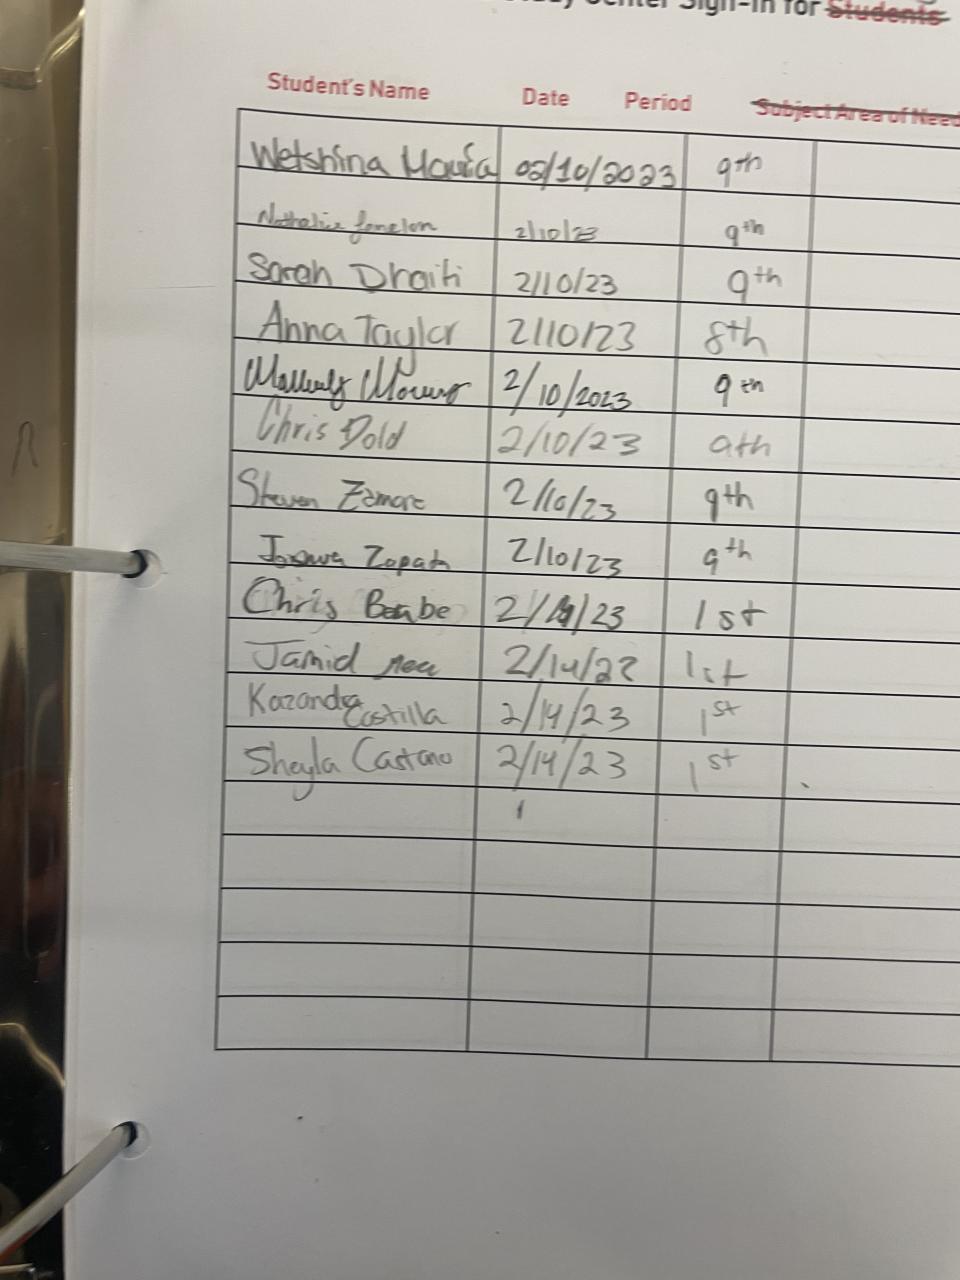 Center Sign-In for Students
Student's Name Date Period Subject Area of Need
Wetshina 02/10/2023 9th
2/10/23 9th
Sarah Draiti 2/10/23 9th
Anna Taylor 2/10/23 8th
2/10/2023 9th
Chris Dold 2/10/23 9th
Steven 2/10/23 9th
Zapata 2/10/23 9th
Chris 2/14/23 1st
Jamid 2/14/23 1st
Kazandra Castilla 2/14/23 1st
Sheyla Castano 2/14/23 1st